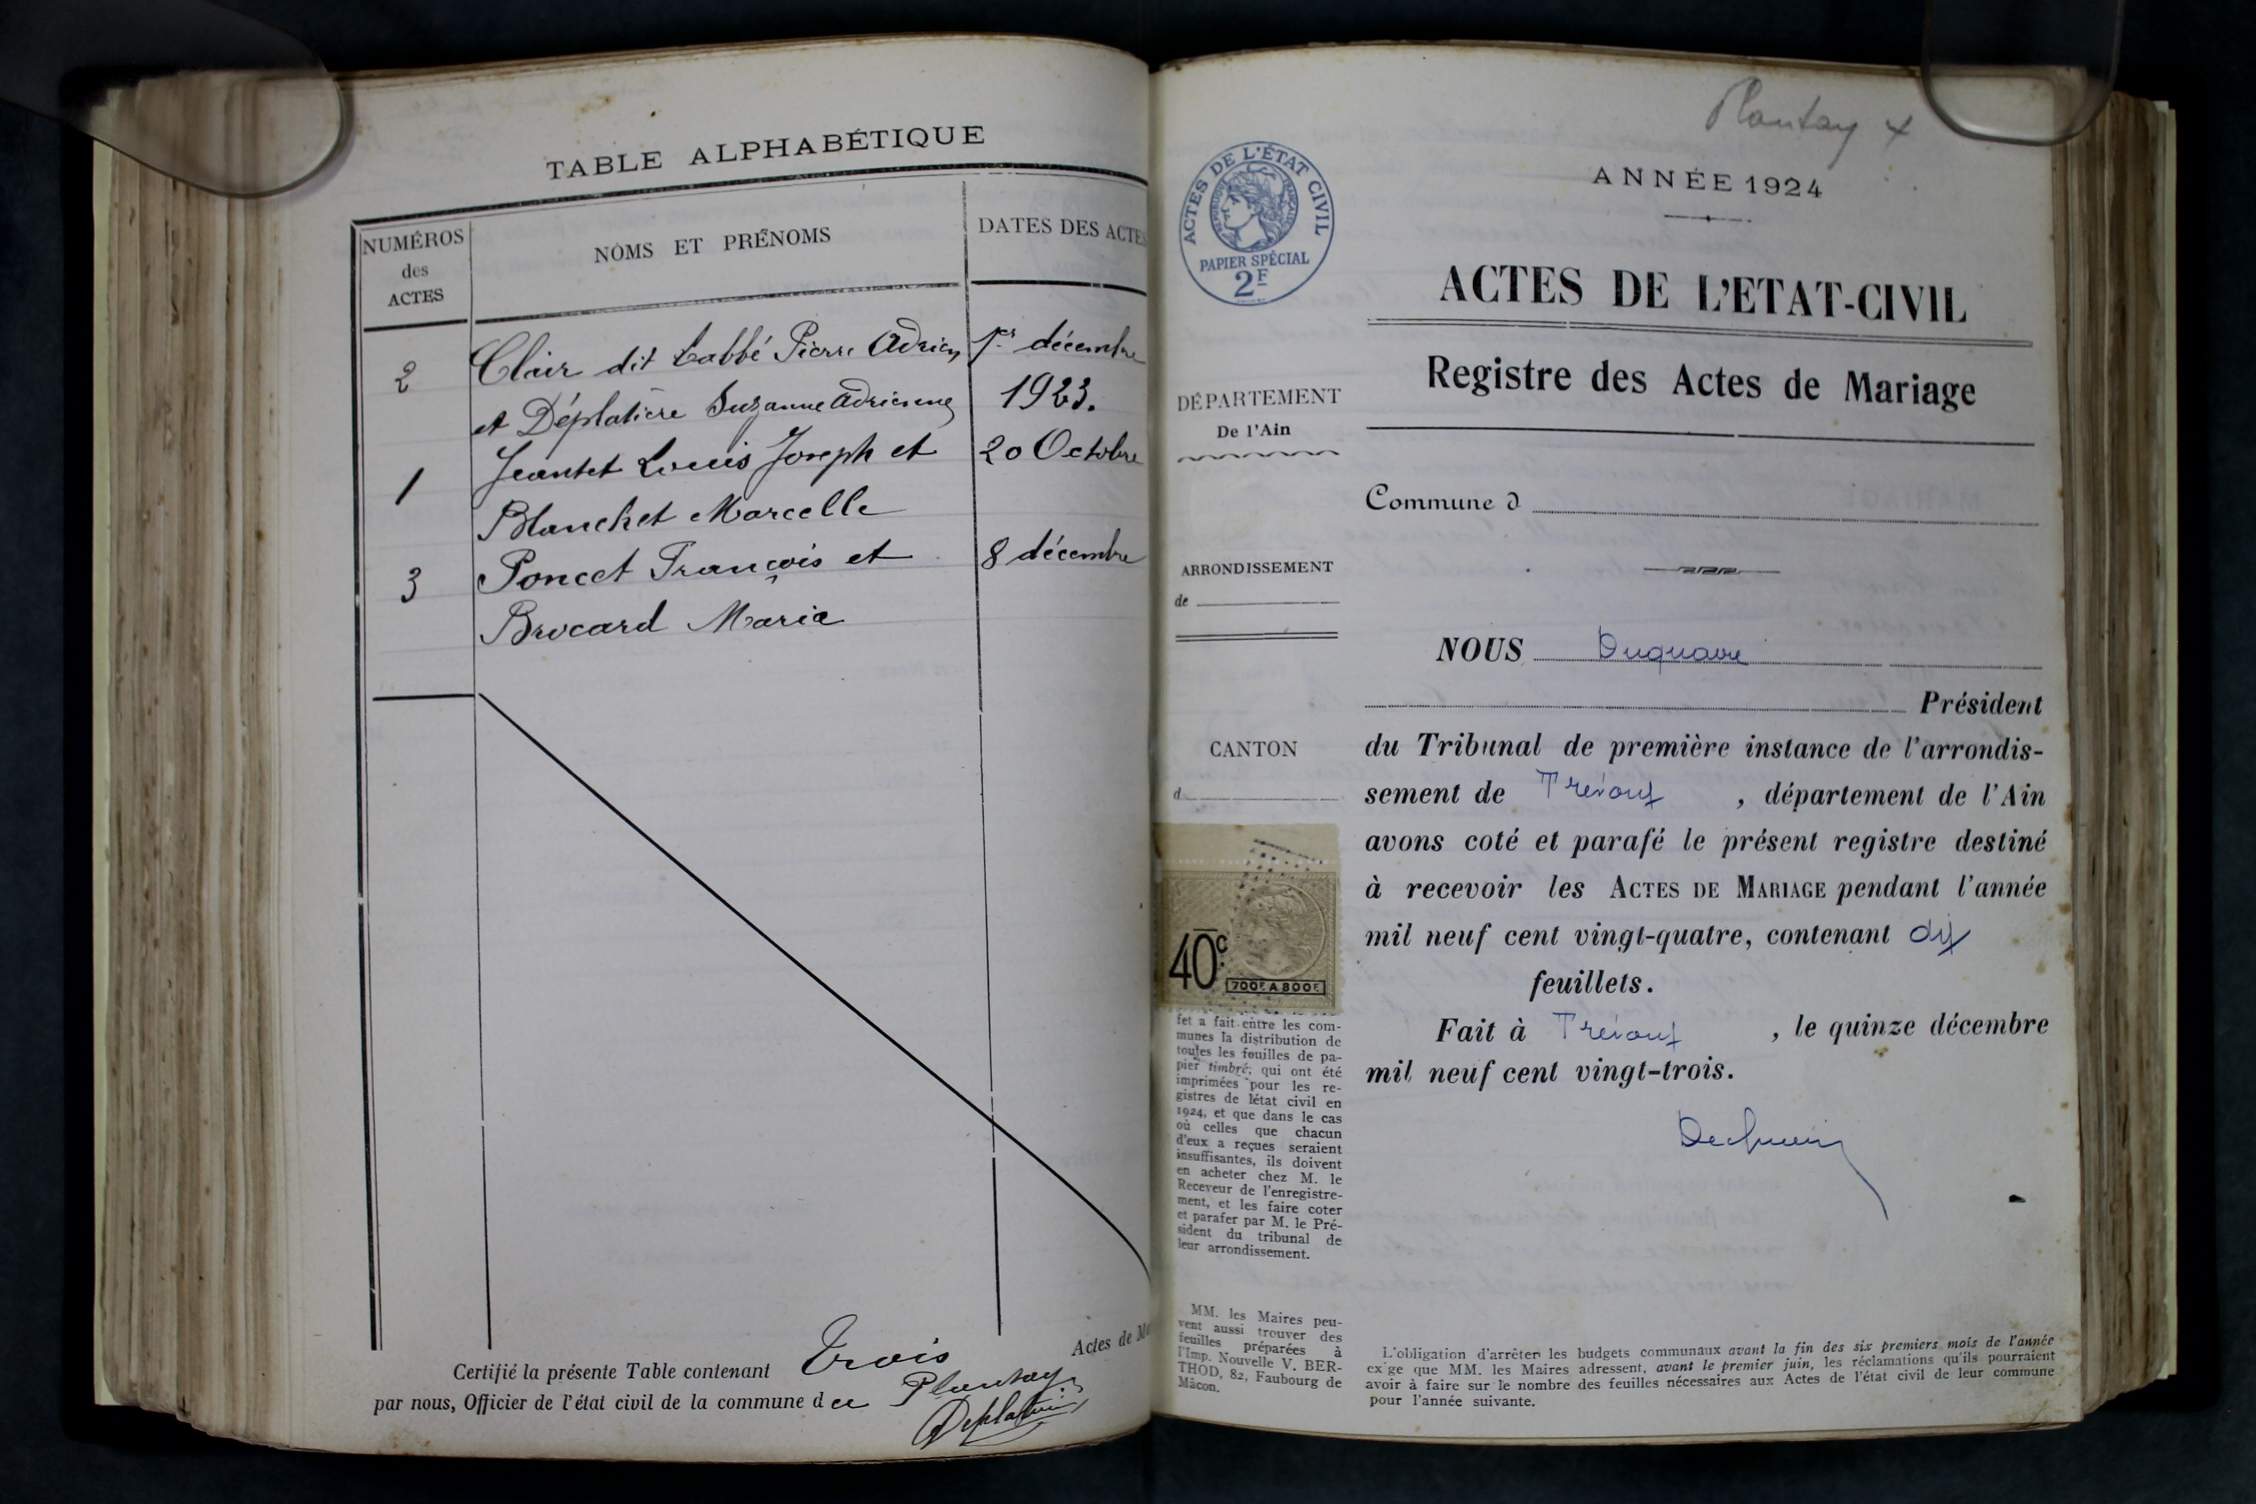 TABLE ALPHABÉTIQUE
NUMÉROS
des
ACTES
NOMS ET PRÉNOMS
DATES DES ACTES
2
Clair dit Labbé Pierre Adrien
1er décembre
et Déplatière Suzanne Adrienne
1923.
1
Jeantet Louis Joseph et
20 Octobre
Blanchet Marcelle
3
Poncet François et
8 décembre
Brocard Maria
Certifié la présente Table contenant trois Actes de
par nous, Officier de l'état civil de la commune d u Plantay
Plantay x
ACTES DE L'ÉTAT CIVIL
RÉPUBLIQUE FRANÇAISE
PAPIER SPÉCIAL
2F
ANNÉE 1924
ACTES DE L'ETAT-CIVIL
Registre des Actes de Mariage
DÉPARTEMENT
De l'Ain
Commune d
ARRONDISSEMENT
de
CANTON
d
NOUS
Président
du Tribunal de première instance de l'arrondis-
sement de Trévoux , département de l'Ain
avons coté et parafé le présent registre destiné
à recevoir les ACTES DE MARIAGE pendant l'année
mil neuf cent vingt-quatre, contenant dix
feuillets.
Fait à Trévoux , le quinze décembre
mil neuf cent vingt-trois.
40c
700F A 800F
fet a fait entre les com-
munes la distribution de
toutes les feuilles de pa-
pier timbré, qui ont été
imprimées pour les re-
gistres de létat civil en
1924, et que dans le cas
où celles que chacun
d'eux a reçues seraient
insuffisantes, ils doivent
en acheter chez M. le
Receveur de l'enregistre-
ment, et les faire coter
et parafer par M. le Pré-
sident du tribunal de
leur arrondissement.
MM. les Maires peu-
vent aussi trouver des
feuilles préparées à
l'Imp. Nouvelle V. BER-
THOD, 82, Faubourg de
Mâcon.
L'obligation d'arrêter les budgets communaux avant la fin des six premiers mois de l'année
ex'ge que MM. les Maires adressent, avant le premier juin, les réclamations qu'ils pourraient
avoir à faire sur le nombre des feuilles nécessaires aux Actes de l'état civil de leur commune
pour l'année suivante.